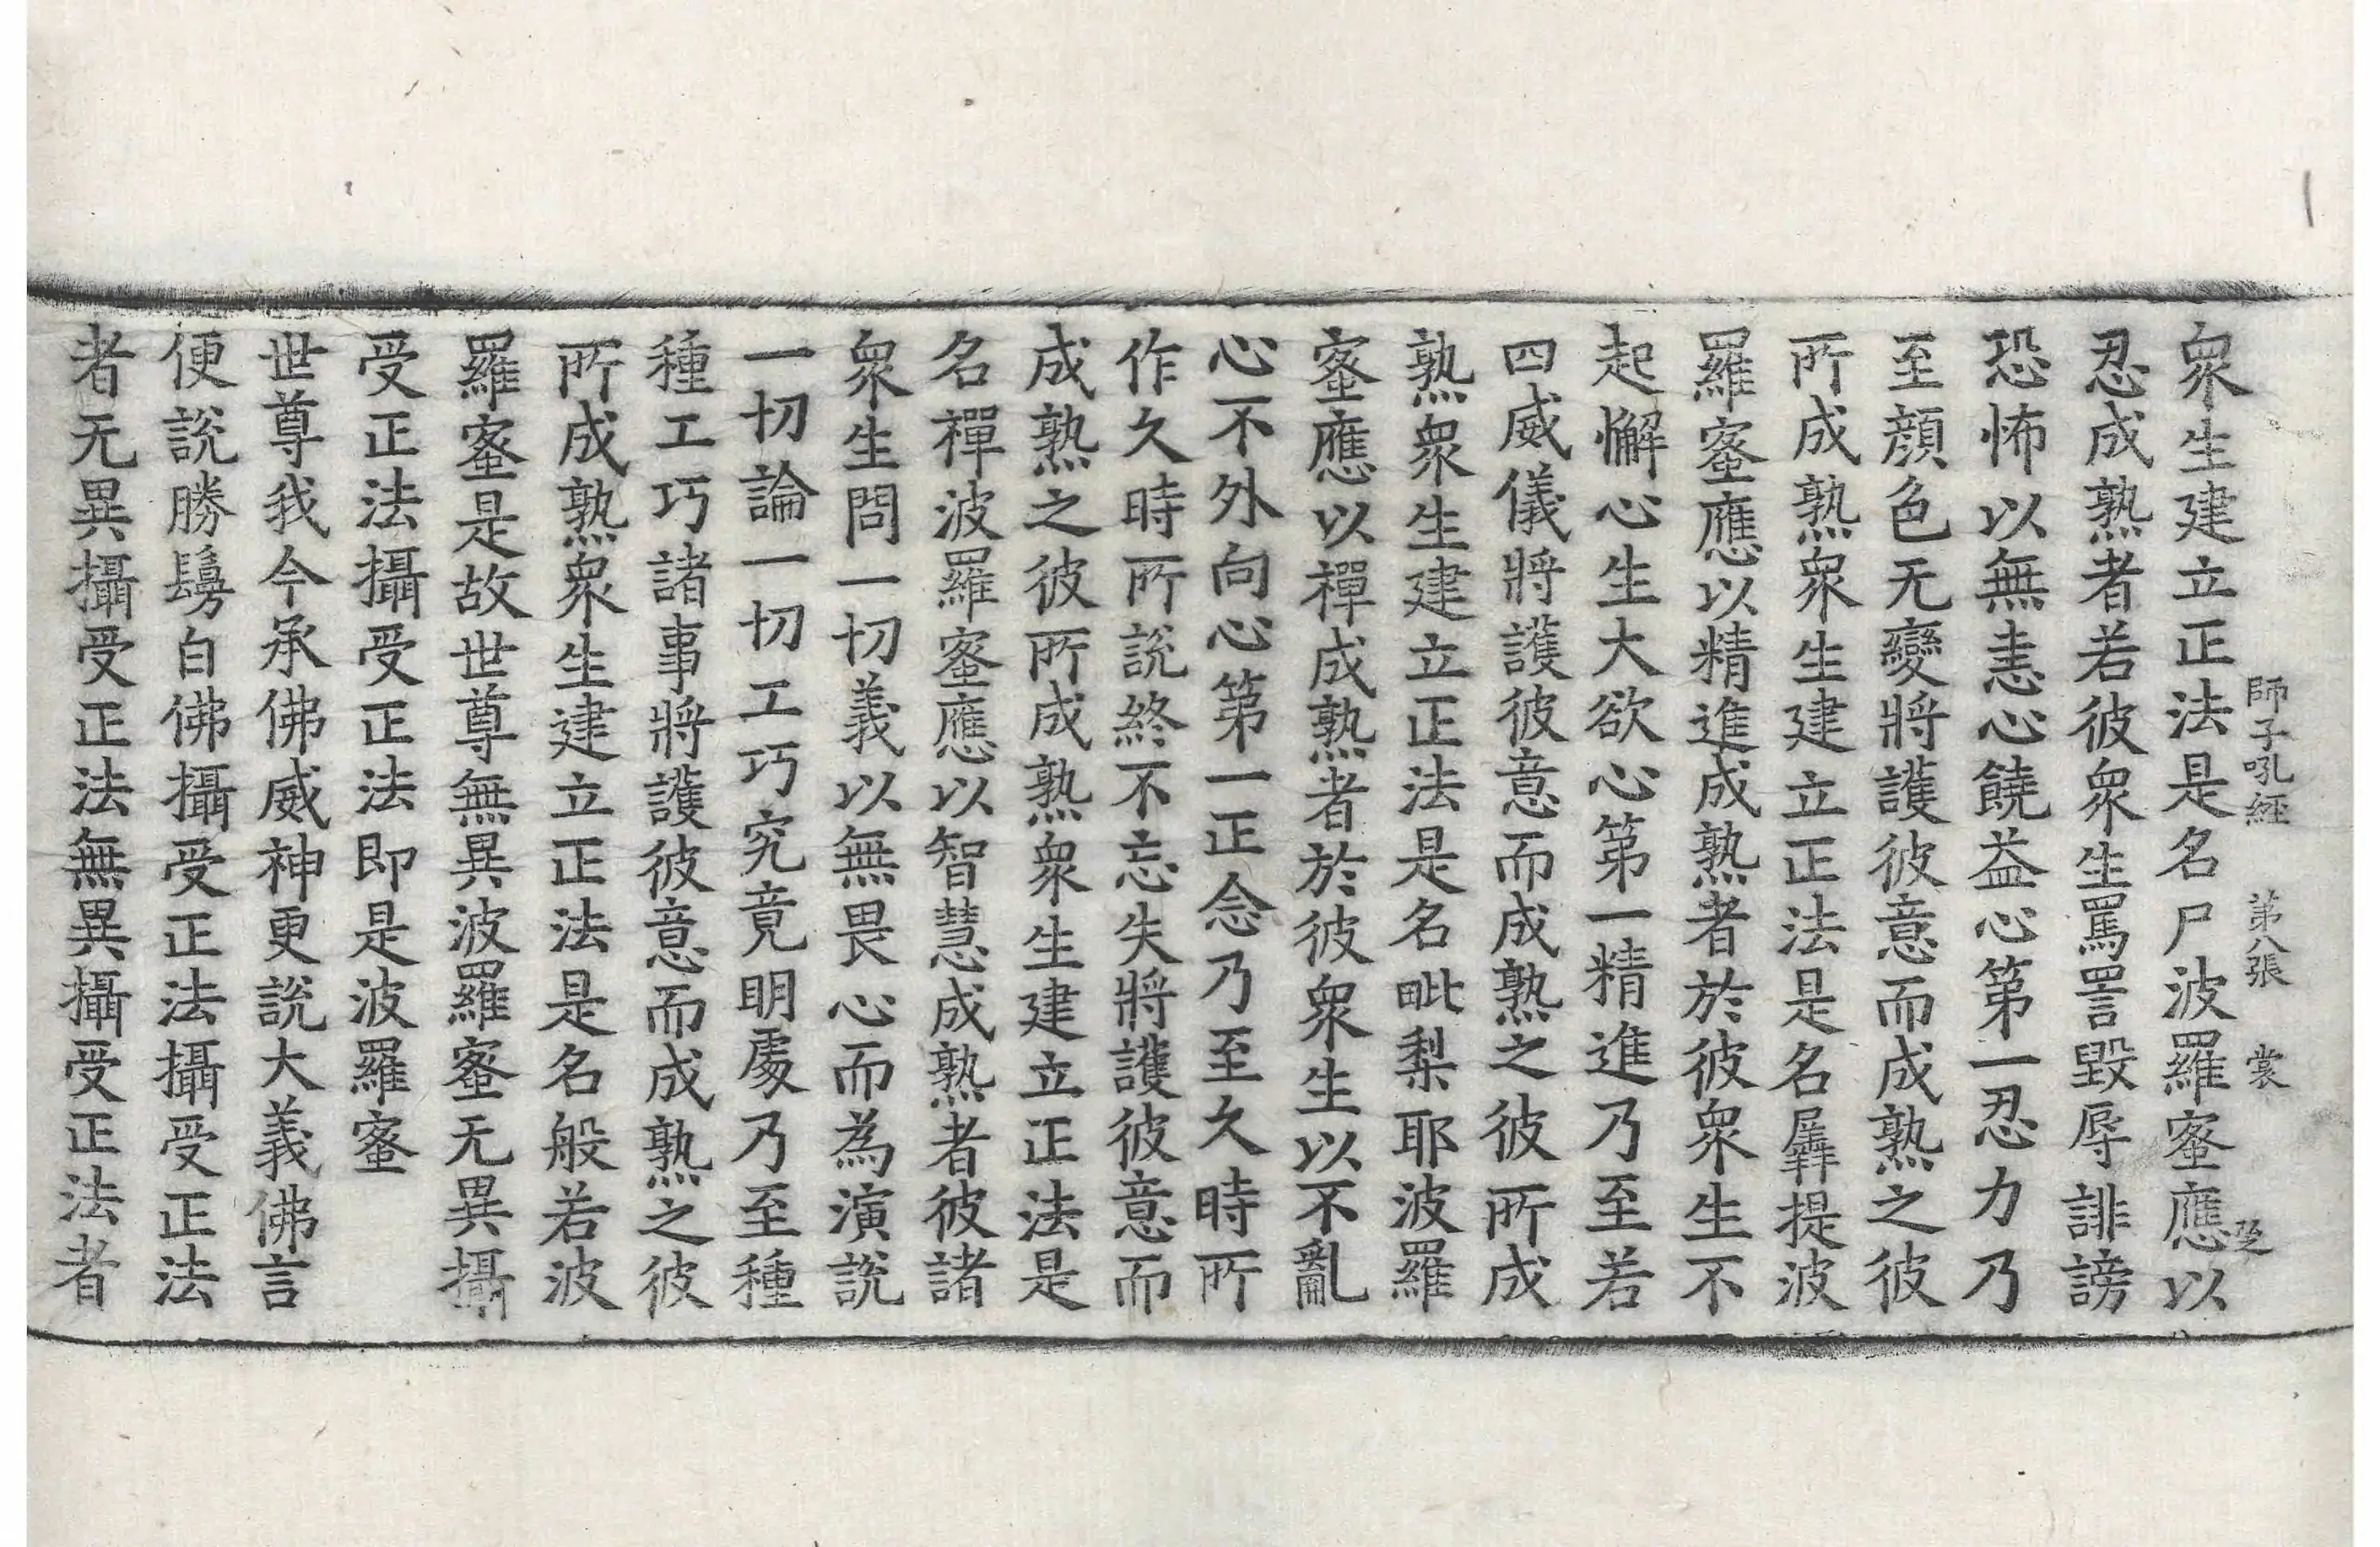 師子吼經 第八張 裳
衆生建立正法是名尸波羅蜜應以
忍成熟者若彼衆生罵詈毀辱誹謗
恐怖以無恚心饒益心第一忍力乃
至顔色无變將護彼意而成熟之彼
所成熟衆生建立正法是名羼提波
羅蜜應以精進成熟者於彼衆生不
起懈心生大欲心第一精進乃至若
四威儀將護彼意而成熟之彼所成
熟衆生建立正法是名毗梨耶波羅
蜜應以禪成熟者於彼衆生以不亂
心不外向心第一正念乃至久時所
作久時所說終不忘失將護彼意而
成熟之彼所成熟衆生建立正法是
名禪波羅蜜應以智慧成熟者彼諸
衆生問一切義以無畏心而為演說
一切論一切工巧究竟明處乃至種
種工巧諸事將護彼意而成熟之彼
所成熟衆生建立正法是名般若波
羅蜜是故世尊無異波羅蜜无異攝
受正法攝受正法即是波羅蜜
世尊我今承佛威神更說大義佛言
便說勝鬘白佛攝受正法攝受正法
者无異攝受正法無異攝受正法者